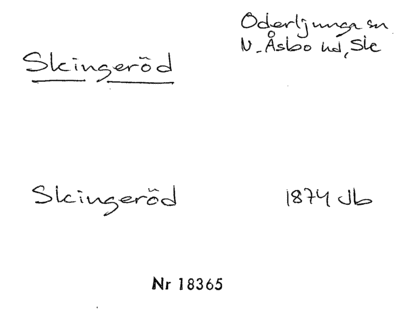 Oderljunga sn
N. Åsbo hd, Sk
Skingeröd
Skingeröd 1874 Jb
Nr 18365